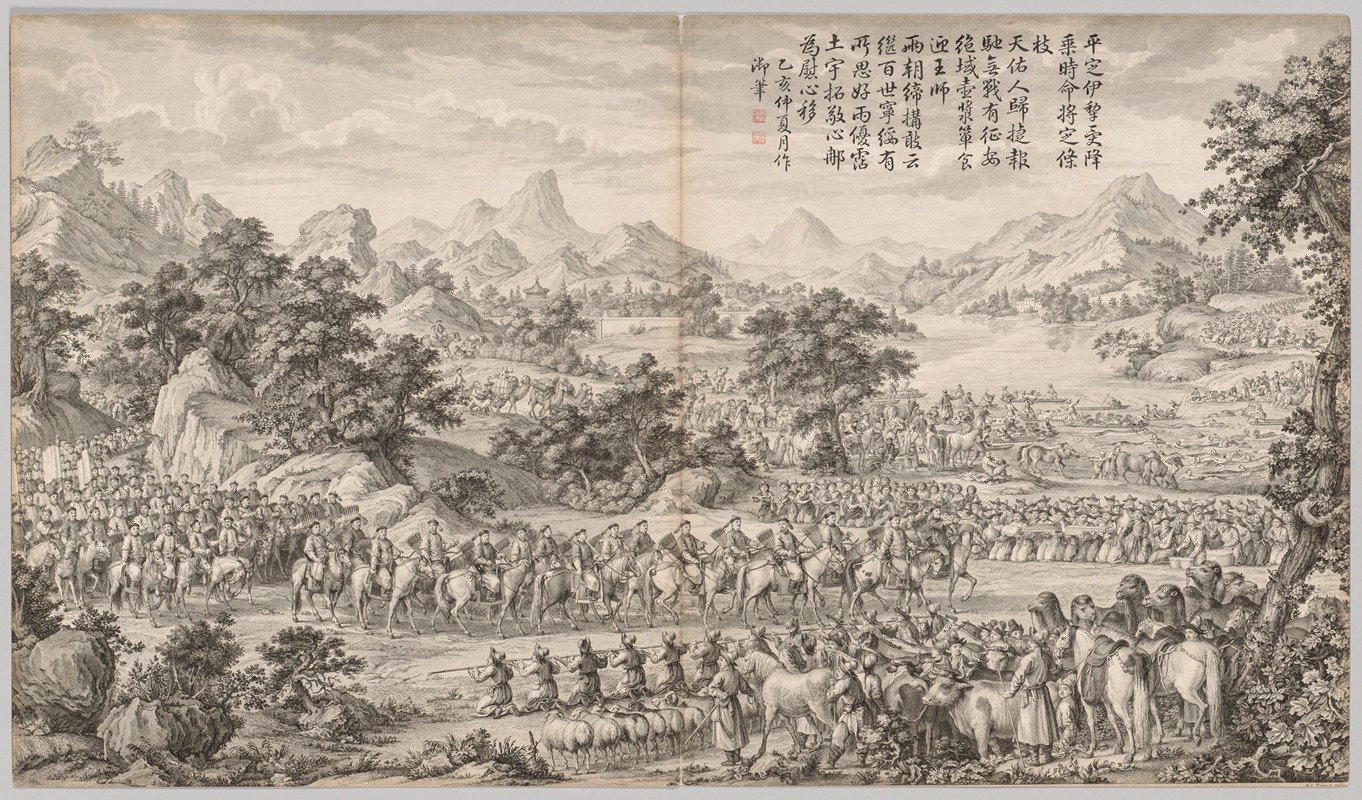 平定伊犂受降
乘時命將定條
枝
天佑人歸捷報
馳無戰有征安
絶域壺漿簞食
迎王師
兩朝締構敢云
繼百世寧綏有
所思好雨優霑
土宇拓敬心那
為慰心移
乙亥仲夏月作
御筆